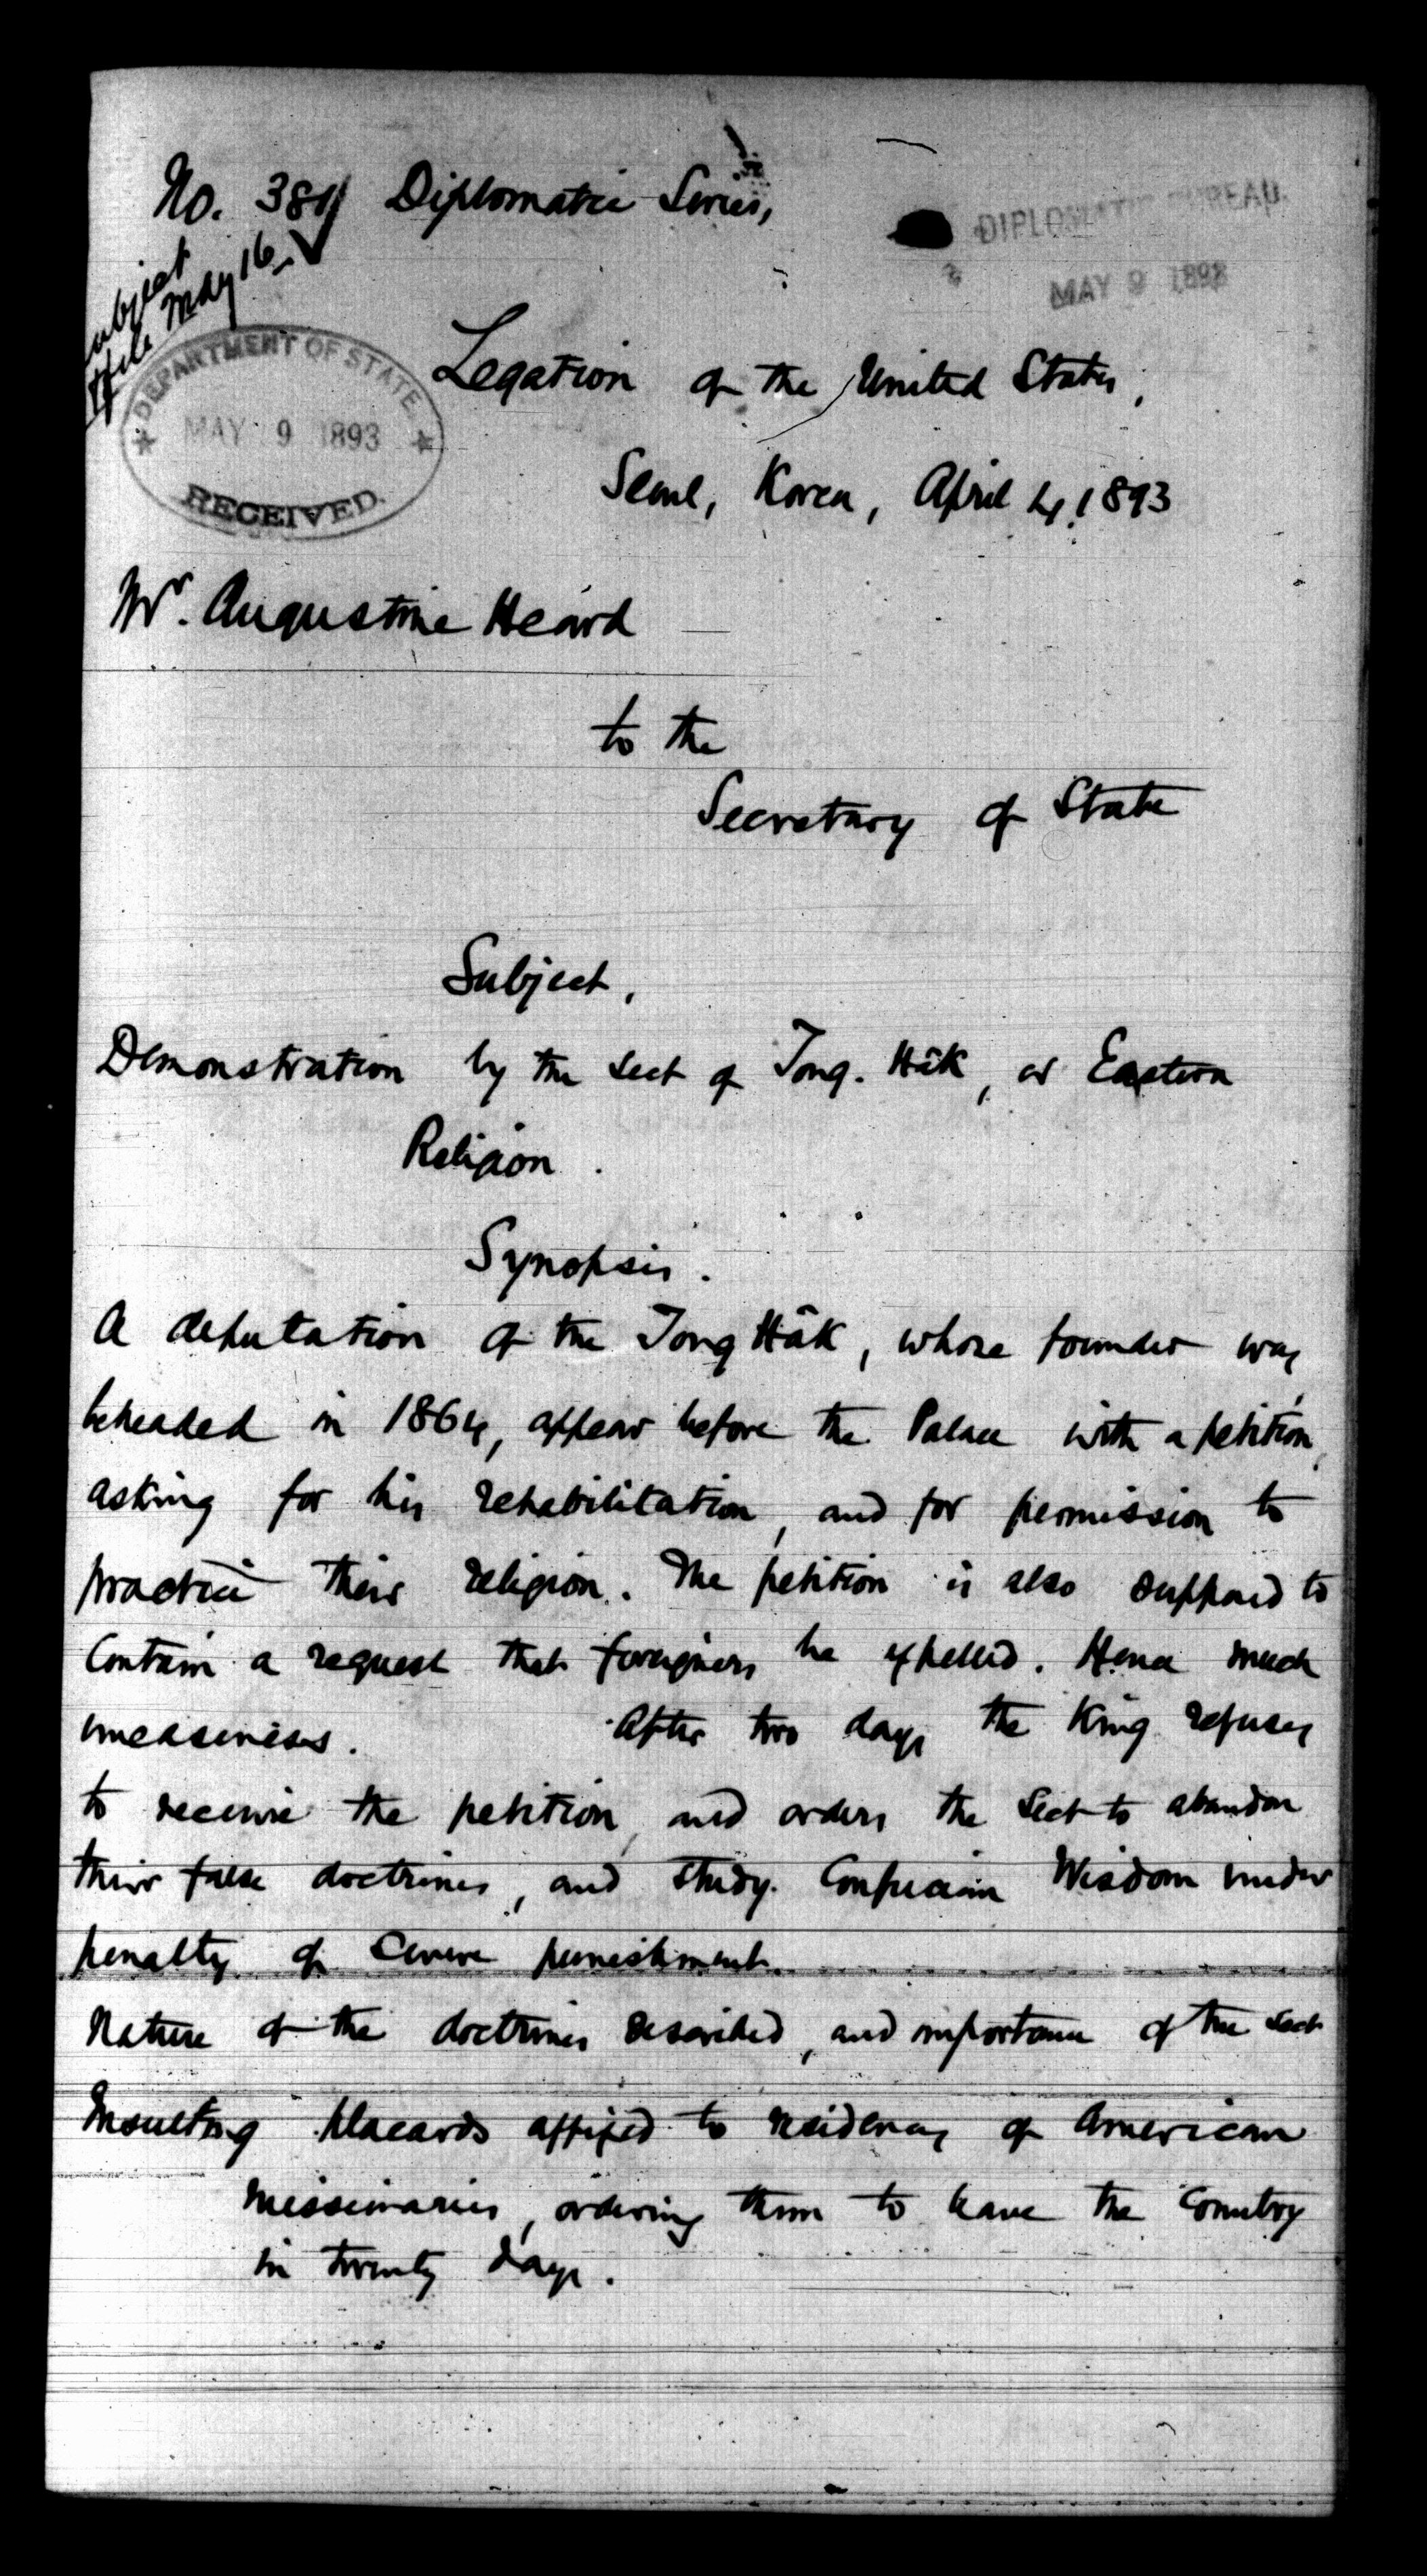 No. 381 Diplomatic Series,
DIPLOMATIC BUREAU.
MAY 9 1893
Subject
file May 16
DEPARTMENT OF STATE
MAY 9 1893
RECEIVED.
Legation of the United States,
Seoul, Korea, April 4, 1893
Mr. Augustine Heard
to the
Secretary of State
Subject,
Demonstration by the sect of Tong. Hăk, or Eastern
Religion.
Synopsis.
A deputation of the Tong Hăk, whose founder was
beheaded in 1864, appear before the Palace with a petition,
asking for his rehabilitation, and for permission to
practice their religion. The petition is also supposed to
contain a request that foreigners be expelled. Hence much
uneasiness. After two days the King refuses
to receive the petition, and orders the sect to abandon
their false doctrines, and study Confucian Wisdom under
penalty of severe punishment.
Nature of the doctrines described, and importance of the sect
Insulting placards affixed to residences of American
missionaries, ordering them to leave the Country
in twenty days.